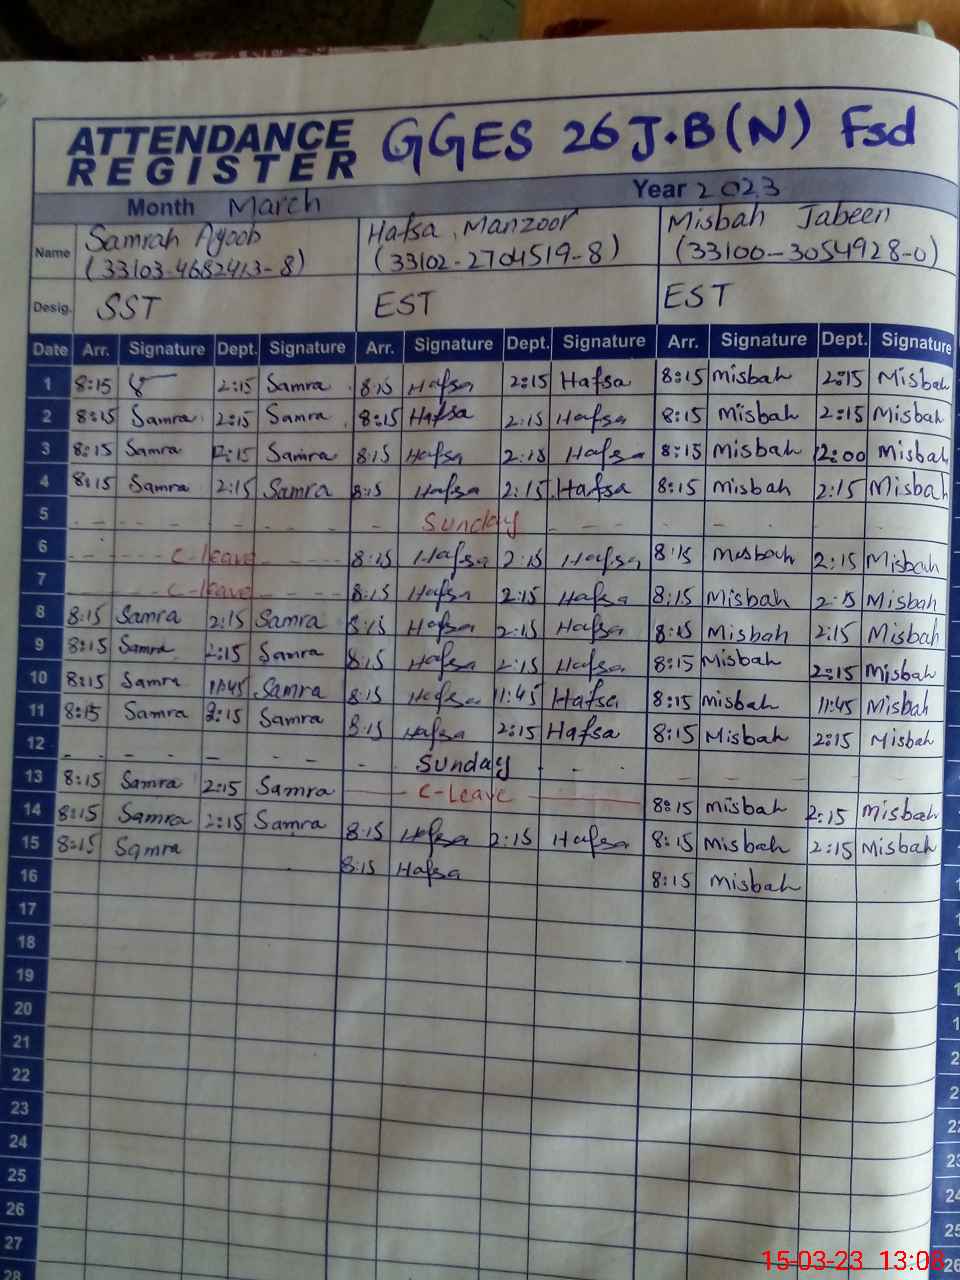 ATTENDANCE REGISTER GGES 26 J.B(N) Fsd
Month March Year 2023
Name Samrah Ayoob Hafsa Manzoor Misbah Jabeen
(33103-4682413-8) (33102-2704519-8) (33100-3054928-0)
Desig. SST EST EST
Date Arr. Signature Dept. Signature Arr. Signature Dept. Signature Arr. Signature Dept. Signature
1 8:15 2:15 Samra 8:15 Hafsa 2:15 Hafsa 8:15 Misbah 2:15 Misbah
2 8:15 Samra 2:15 Samra 8:15 Hafsa 2:15 Hafsa 8:15 Misbah 2:15 Misbah
3 8:15 Samra 12:15 Samra 8:15 Hafsa 2:15 Hafsa 8:15 Misbah 12:00 Misbah
4 8:15 Samra 2:15 Samra 8:15 Hafsa 2:15 Hafsa 8:15 Misbah 2:15 Misbah
5 Sunday
6 C-leave 8:15 Hafsa 2:15 Hafsa 8:15 Misbah 2:15 Misbah
7 C-leave 8:15 Hafsa 2:15 Hafsa 8:15 Misbah 2:15 Misbah
8 8:15 Samra 2:15 Samra 8:15 Hafsa 2:15 Hafsa 8:15 Misbah 2:15 Misbah
9 8:15 Samra 2:15 Samra 8:15 Hafsa 2:15 Hafsa 8:15 Misbah 2:15 Misbah
10 8:15 Samra 11:45 Samra 8:15 Hafsa 11:45 Hafsa 8:15 Misbah 11:45 Misbah
11 8:15 Samra 2:15 Samra 8:15 Hafsa 2:15 Hafsa 8:15 Misbah 2:15 Misbah
12 Sunday
13 8:15 Samra 2:15 Samra C-Leave 8:15 Misbah 2:15 Misbah
14 8:15 Samra 2:15 Samra 8:15 Hafsa 2:15 Hafsa 8:15 Misbah 2:15 Misbah
15 8:15 Samra 8:15 Hafsa 8:15 Misbah
16
17
18
19
20
21
22
23
24
25
26
27
28
15-03-23 13:08